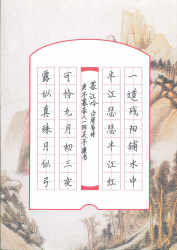 一道残阳铺水中
半江瑟瑟半江红
暮江吟 白居易诗
可怜九月初三夜
露似真珠月似弓